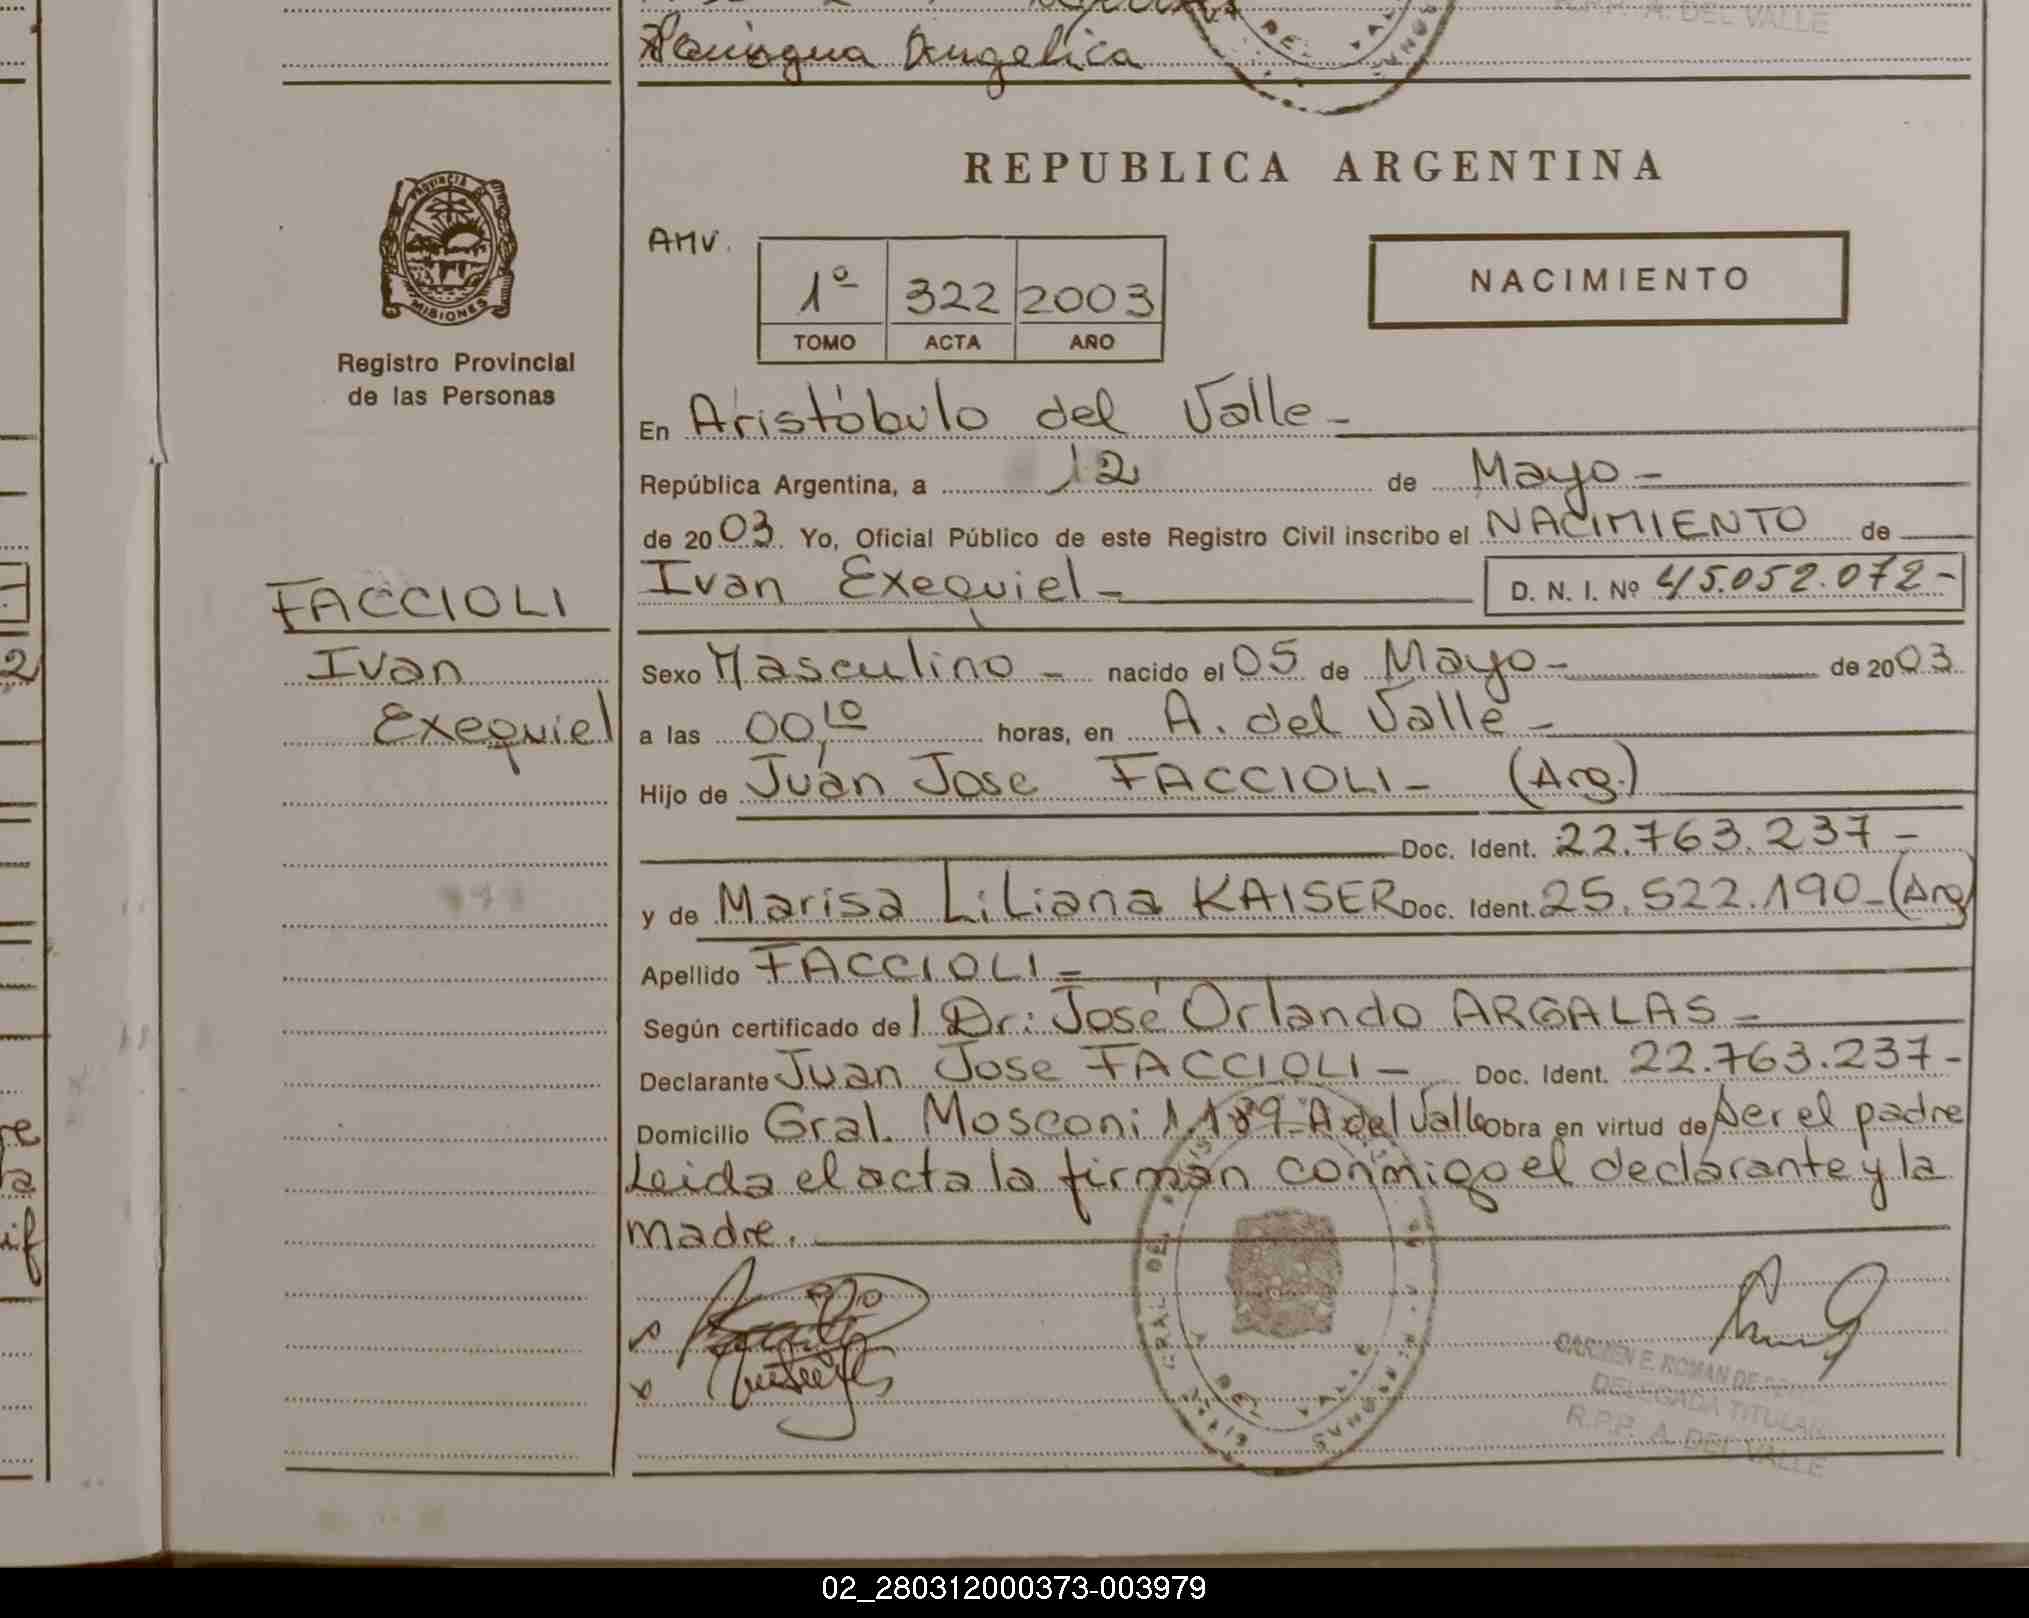 Angelica
R.P.P. A. DEL VALLE
REPUBLICA ARGENTINA
PROVINCIA DE
MISIONES
Registro Provincial
de las Personas
AMV.
1º 322 2003
TOMO ACTA AÑO
NACIMIENTO
En Aristóbulo del Valle -
República Argentina, a 12 de Mayo -
de 2003. Yo, Oficial Público de este Registro Civil inscribo el NACIMIENTO de
Ivan Exequiel - D. N. I. Nº 45.052.072-
FACCIOLI
Ivan
Exequiel
Sexo Masculino - nacido el 05 de Mayo - de 2003
a las 00,10 horas, en A. del Valle -
Hijo de Juan Jose FACCIOLI - (Arg.)
Doc. Ident. 22.763.237 -
y de Marisa Liliana KAISER Doc. Ident. 25.522.190 - (Arg)
Apellido FACCIOLI -
Según certificado del Dr: José Orlando ARGALAS -
Declarante Juan Jose FACCIOLI - Doc. Ident. 22.763.237 -
Domicilio Gral. Mosconi 1.189 - A del Valle obra en virtud de Ser el padre
Leida el acta la firman conmigo el declarante y la
madre.
CARMEN E. ROMAN DE
DELEGADA TITULAR
R.P.P. A. DEL VALLE
02_280312000373-003979